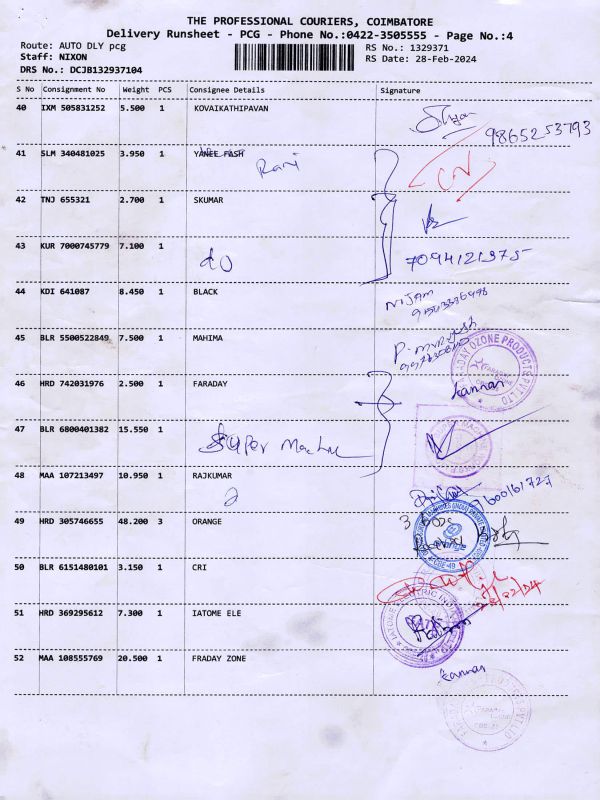 THE PROFESSIONAL COURIERS, COIMBATORE
Delivery Runsheet - PCG - Phone No.:0422-3505555 - Page No.:4
Route: AUTO DLY pcg
Staff: NIXON
DRS No.: DCJB132937104
RS No.: 1329371
RS Date: 28-Feb-2024
S No Consignment No Weight PCS Consignee Details Signature
40 IXM 505831252 5.500 1 KOVAIKATHIPAVAN
9865253793
41 SLM 340481025 3.950 1 YANEE FASH
Rani
42 TNJ 655321 2.700 1 SKUMAR
43 KUR 7000745779 7.100 1
do
7094121375
44 KDI 641087 8.450 1 BLACK
NIJAM
45 BLR 5500522849 7.500 1 MAHIMA
46 HRD 742031976 2.500 1 FARADAY
kannan
47 BLR 6800401382 15.550 1
Super
48 MAA 107213497 10.950 1 RAJKUMAR
9600161727
49 HRD 305746655 48.200 3 ORANGE
3
50 BLR 6151480101 3.150 1 CRI
51 HRD 369295612 7.300 1 IATOME ELE
52 MAA 108555769 20.500 1 FRADAY ZONE
kannan